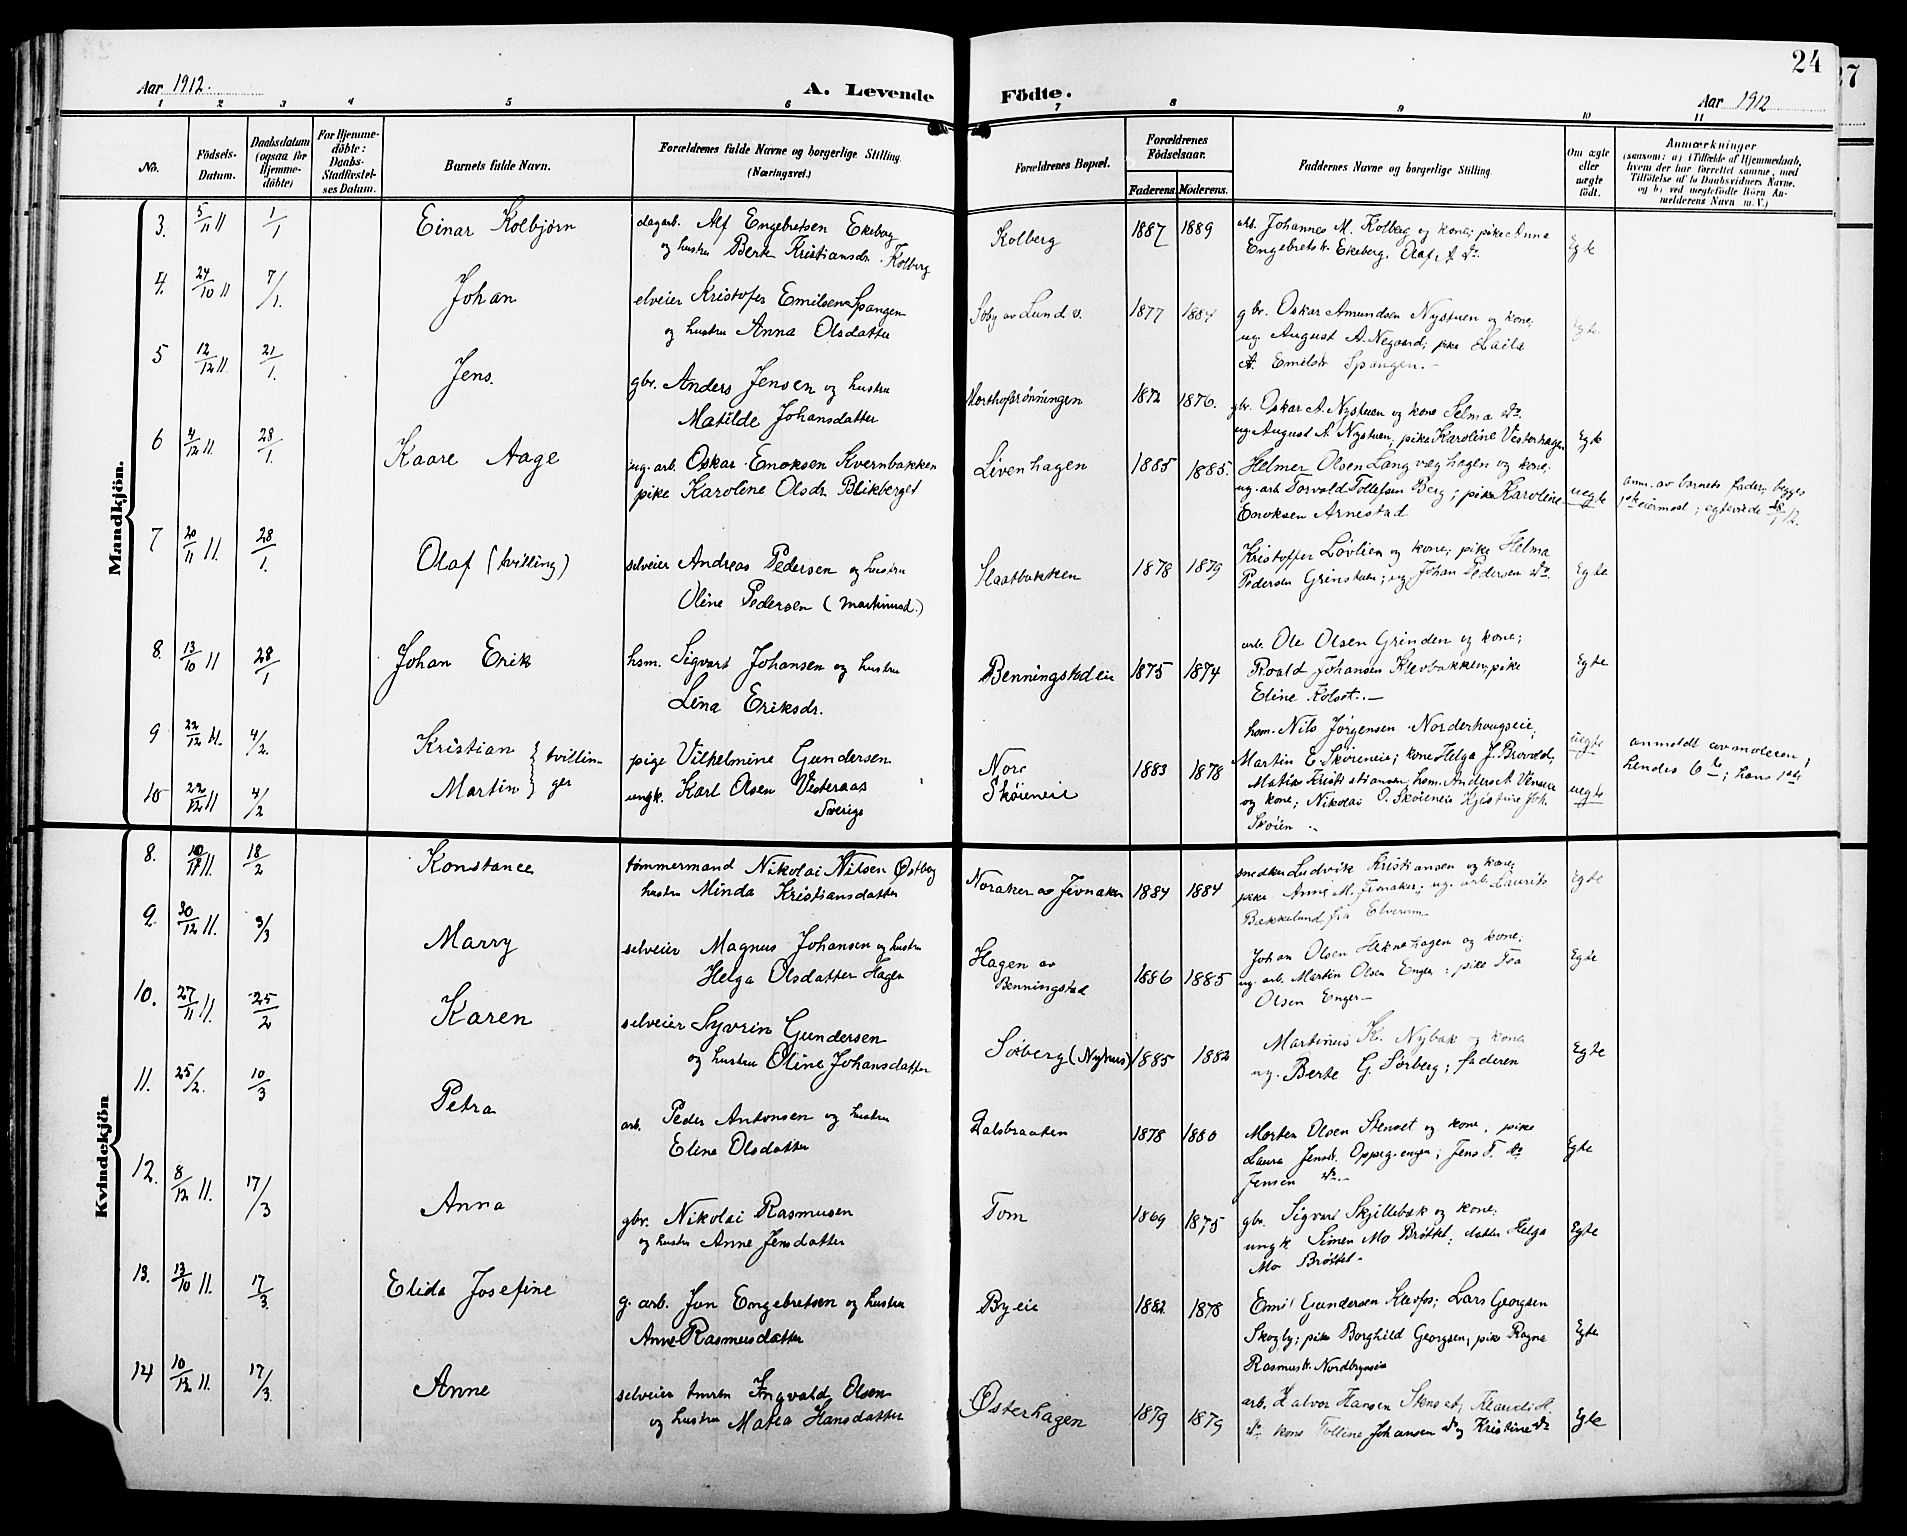 24
27
Aar 1912.
A. Levende Födte.
Aar 1912
1 2 3 4 5 6 7 8 9 10 11
No.
Födsels-Datum.
Daabsdatum (ogsaa for Hjemme-döbte)
For Hjemme-döbte: Daabs-Stadfæstel-ses Datum.
Barnets fulde Navn.
Forældrenes fulde Navne og borgerlige Stilling (Næringsvei.)
Forældrenes Bopæl.
Forældrenes Födselsaar.
Faderens. Moderens.
Faddernes Navne og borgerlige Stilling
Om ægte eller uægte födt.
Anmærkninger
(saasom: a) i Tilfælde af Hjemmedaab, hvem der har forrettet samme, med Tilföielse af to Daabsvidners Navne, og b) ved uægtefödte Börn An-melderens Navn m. V.)
Mandkjön.
3. 5/11 11 1/1 Einar Kolbjörn dagarb. Alf Engebretsen Ekeberg Kolberg 1887 1889 arb. Johannes M. Kolberg og kone; pike Anna
og hustru Berte Kristiansdr. Kolberg Engebretsk. Ekeberg. Olaf A do. Egte
4. 24/10 11 7/1. Johan Kristofer Emilsen Spangen 1877 1884 gbr. Oskar Amundsen Nystuen og kone;
og hustru Anna Olsdatter ug. August A. Negaard; pike Laila Egte
A. Emilsdr Spangen.
5 12/12 11. 21/1. Jens. gbr. Anders Jensen og hustru 1872 1876. gbr. Oskar A. Nystuen og kone Selma do.
Matilde Johansdatter ug. August A. Nystuen, pike Karoline Vesterhagen Egte
6 4/12 11. 28/1. Kaare Aage ug. arb. Oskar Enoksen Kvernbakken Livenhagen 1885 1885. Helmer Olsen Langvæghagen og kone;
pike Karoline Olsdr. Blikberget ug. arb Torvald Tollefsen Berg; pike Karoline uegte anm. av barnets fader; begges
Enoksen Arnestad
7 20/11 11. 28/1. Olaf (tvilling) selveier Andreas Pedersen og hustru Slaatbakken 1878 1879 Kristoffer Lövlien og kone; pike Helma
Oline Pedersen (Martinusd.) Pedersen Grinstuen; ug. Johan Pedersen do. Egte
8. 13/10 11 28/1 Johan Erik hsm. Sigvart Johansen og hustru Benningstadeie 1875 1874 arb. Ole Olsen Grinden og kone;
Lina Eriksdr. Roald Johansen Klevbakken; pike Egte
Eline Kolset.
9 22/12 11. 4/2. Kristian } tvillin- pige Vilhelmine Gundersen Nore 1883 1878 hsm. Nils Jörgensen Norderhougseie, uegte anmeldt av moderen;
10 22/12 11 4/2 Martin } ger ungk. Karl Olsen Vesteraas Sköieneie Martin E. Sköieneie; kone Helga J. uegte hendes 6te; hans 1ste
Sverige og kone; Nikolai O. Sköieneie
Sköien
Kvindekjön
8. 18/2 Konstance tömmermand Nikolai Nilsen Östberg Noraker av Jevnaker 1884 1884 Ludvik Kristiansen og kone;
hustru Minda Kristiansdatter pike Anne M. Jevnaker; ug. arb. Laurits Egte
Bækkelund fra Elverum
9. 30/12 11. 3/3 Marry selveier Magnus Johansen og hustru Hagen av 1886 1885 Johan Olsen Heknehagen og kone;
Helga Olsdatter Hagen Benningstad ug. arb. Martin Olsen Enger; pike Egte
Olsen Enger
10. 27/11 11. 25/2 Karen selveier Syvrin Gundersen Sörberg (Nyhus) 1885 1882 Martinus K. Nybak og kone
og hustru Oline Johansdatter ug. Berte G. Sörberg; faderen Egte
11. 25/2. 10/3 Petra arb. Peder Antonsen og hustru Dalsbraaten 1878 1880 Morten Olsen Stenset og kone, pike
Eline Olsdatter Laura Jensdr. Oppeg.engen; Jens T. do Egte
Jensen do.
12. 8/12 11. 17/3 Anna gbr. Nikolai Rasmusen Tom 1869 1875 gbr. Sigvart Skjillebæk og kone;
og hustru Anne Jensdatter ungk. Simen Mo Bröttet; datter Helga Egte
Mo Bröttet
13. 13/10 11. 17/3. Elida Josefine g. arb. Jon Engebretsen og hustru Byeie 1882 1878 Emil Gundersen Klevfos; Lars Georgsen
Anne Rasmusdatter Skogly; pike Borghild Georgsen; pike Ragna Egte
Rasmusk. Nordbyeie
14 10/12 11. 17/3. Anne selveier tmrm Ingvald Olsen Österhagen 1879 1879 arb. Halvor Hansen Stenset, Klaudi H.
og hustru Matea Hansdatter do. kone Tolline Johansen do og Kristine do Egte